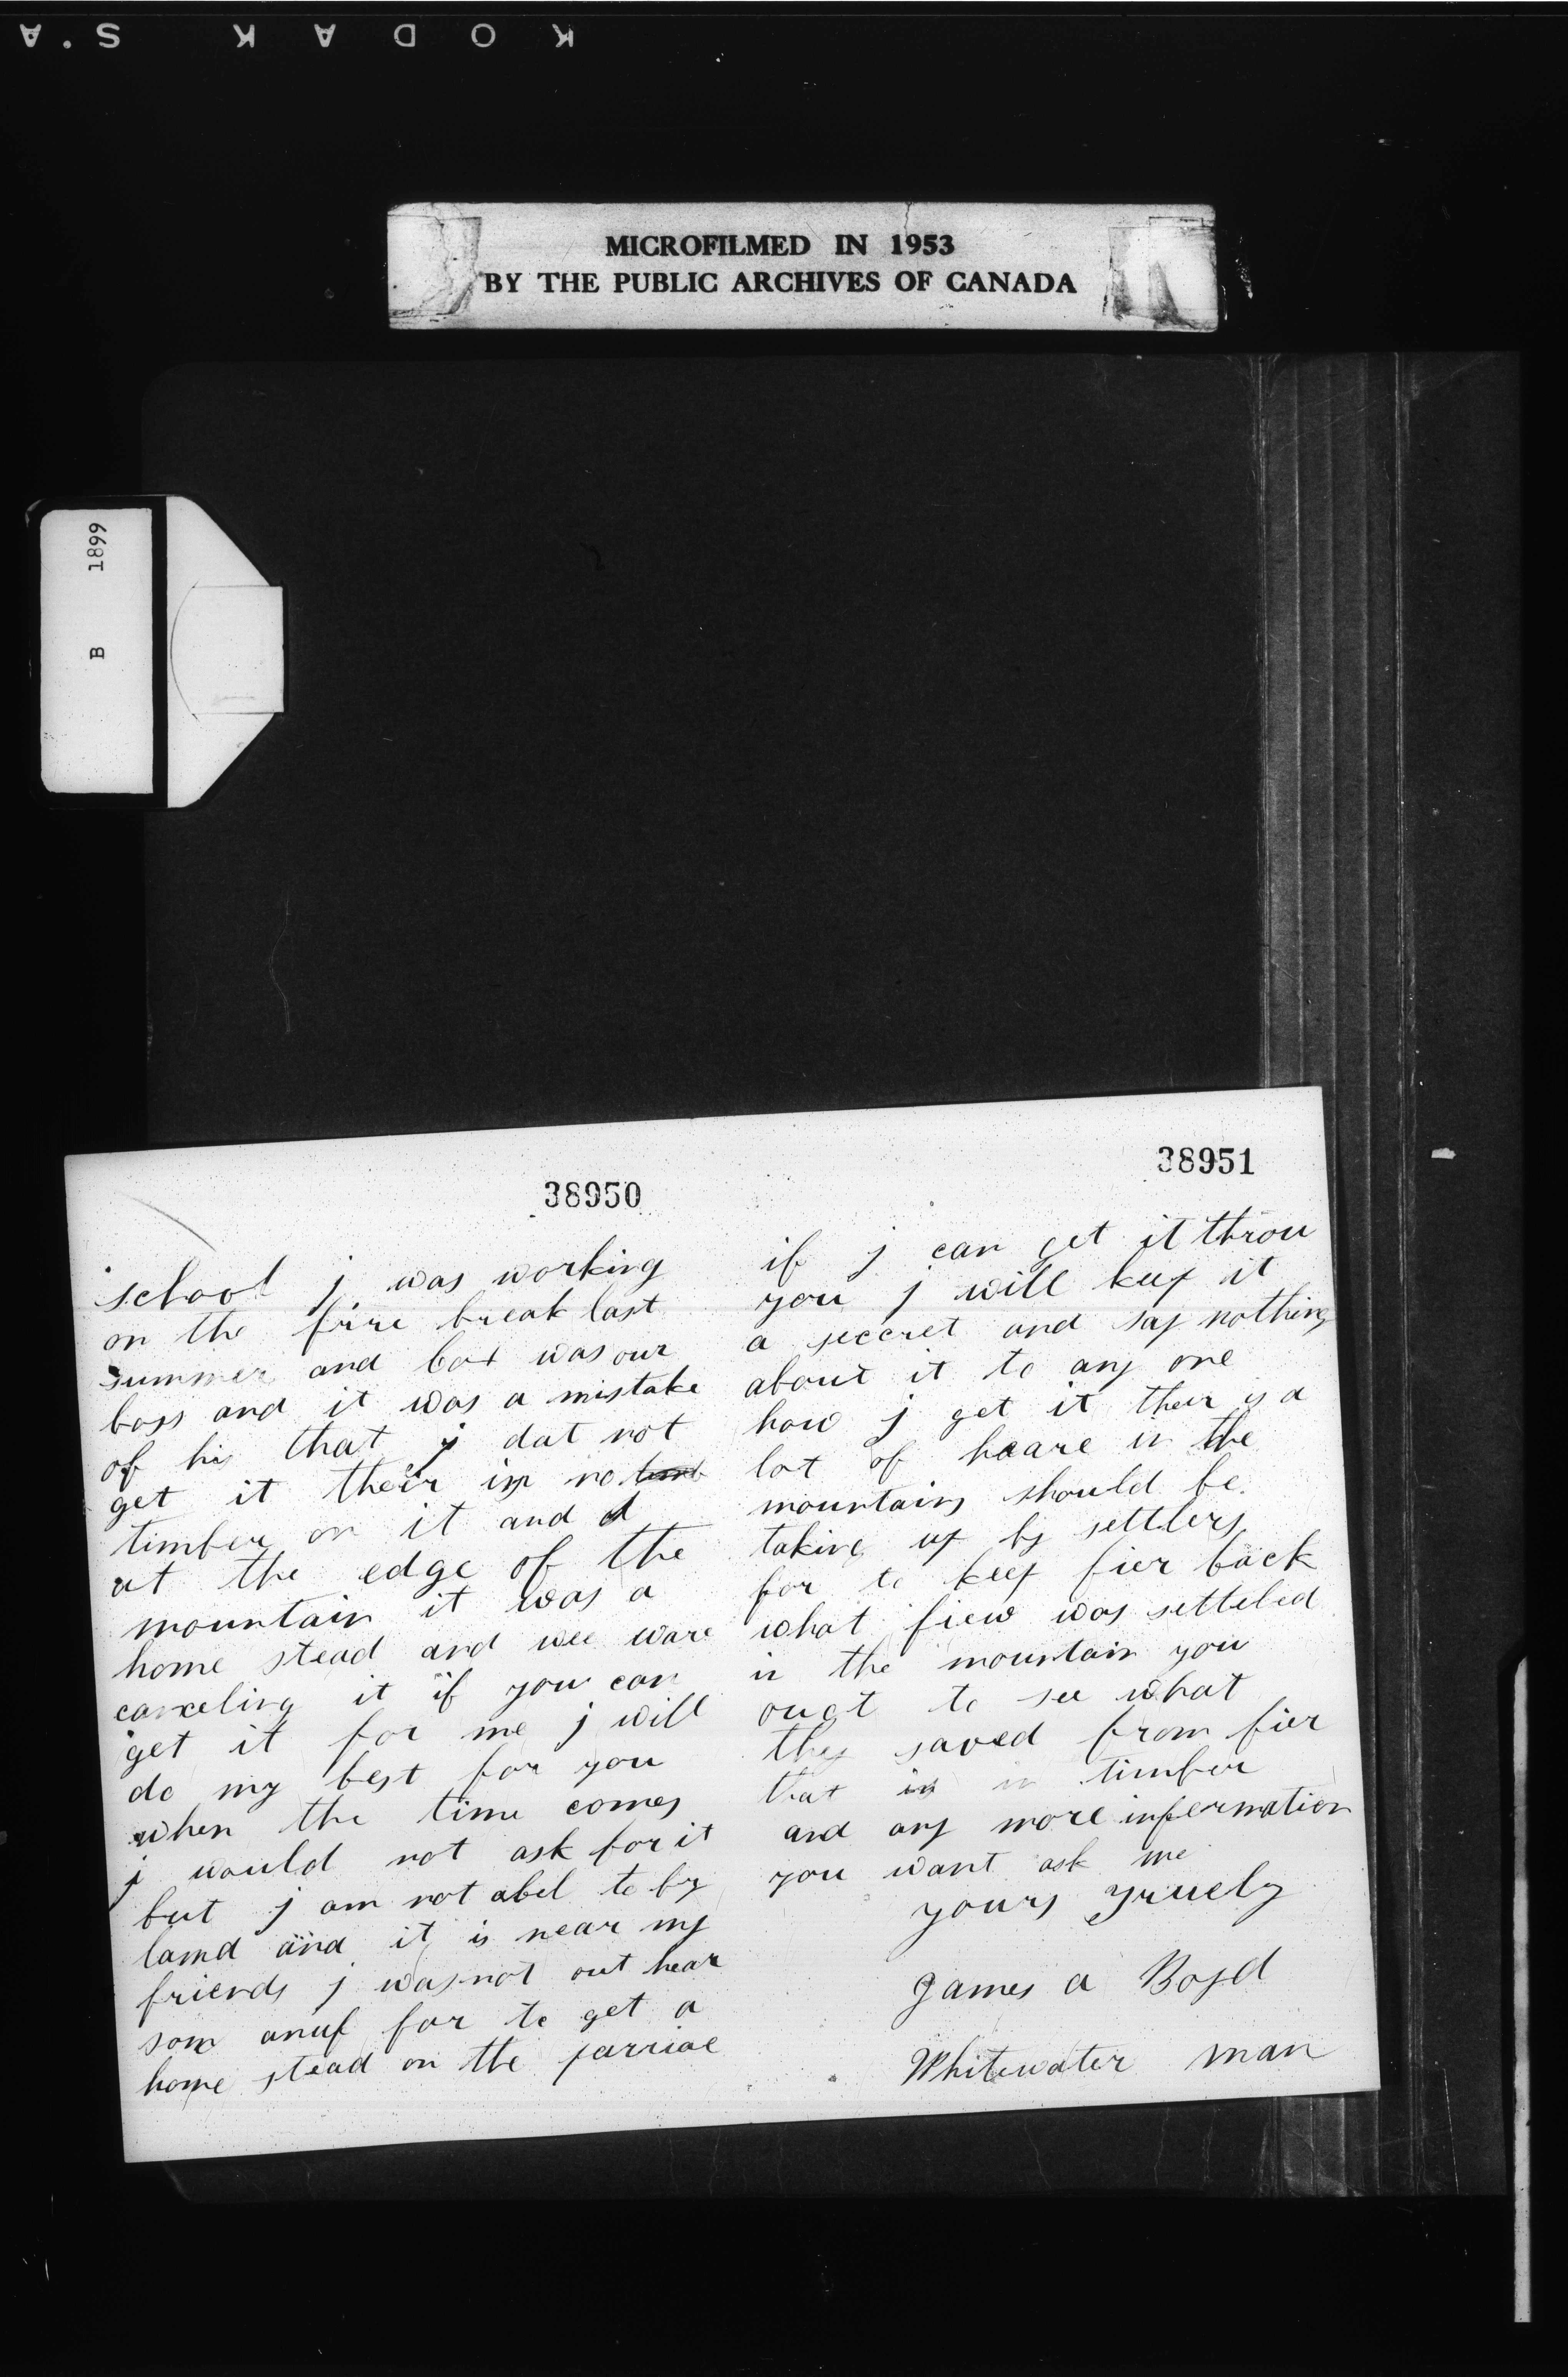 KODAK S.A
MICROFILMED IN 1953
BY THE PUBLIC ARCHIVES OF CANADA
B 1899
38950
school j was working
on the frire break last
summer and bot was our
boss and it was a mistake
of his that j dat not
get it their is no
timber on it and
at the edge of the
mountain it was a
home stead and wee ware
canceling it if you can
get it for me j will
do my best for you
when the time comes
j would not ask for it
but j am not abel to by
lamd and it is near my
friends j was not out hear
som anuf for to get a
home stead on the parriae
38951
if j can get it throu
you j will keep it
a seccret and say nothing
about it to any one
how j get it their is a
lot of heare in the
mountains should be
taking up by settlers
for to keep fier back
what fiew was setteled
in the mountain you
ougt to see what
they saved from fier
that is in timber
and any more infermation
you want ask me
yours yruely
James a Boyd
Whitewater man